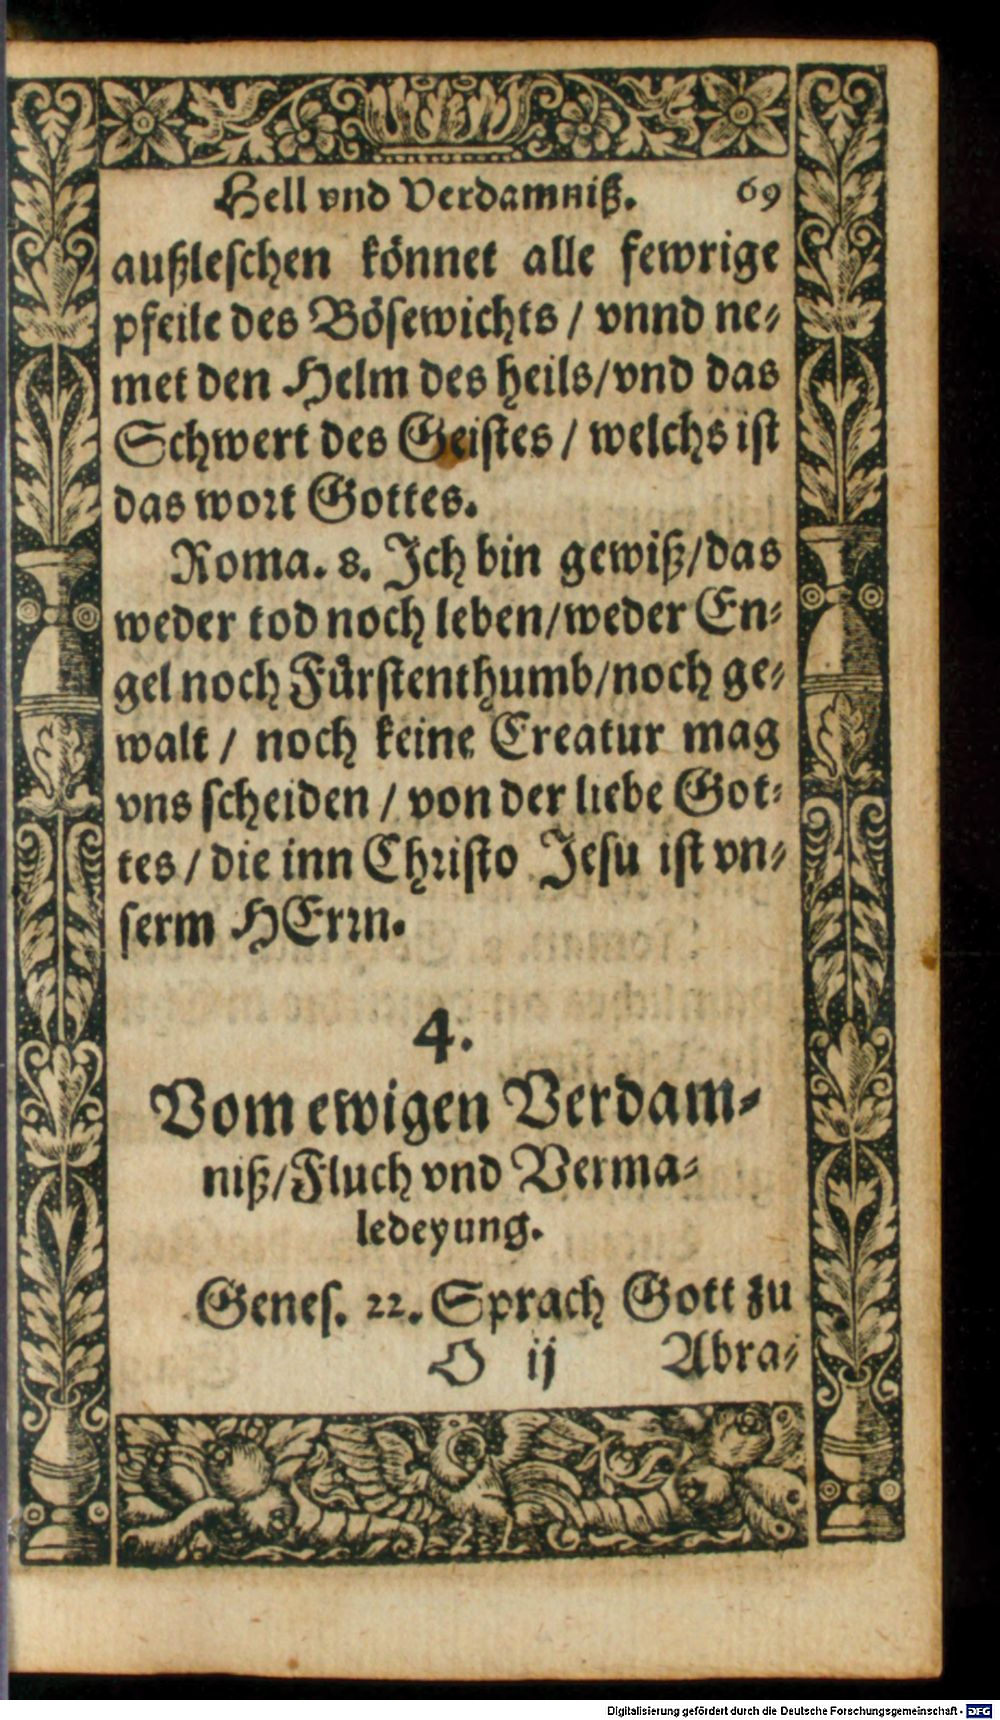 Hell vnd Verdamniß. 69
außleſchen könnet alle fewrige
pfeile des Böſewichts / vnnd ne⸗
met den Helm des heils/vnd das
Schwert des Geiſtes / welchs iſt
das wort Gottes.
Roma. 8. Ich bin gewiß/das
weder tod noch leben/weder En⸗
gel noch Fuͤrſtenthumb/noch ge⸗
walt / noch keine Creatur mag
vns ſcheiden / von der liebe Got⸗
tes / die inn Chriſto Jeſu iſt vn⸗
ſerm HErrn.
4.
Vom ewigen Verdam⸗
niß/Fluch vnd Verma⸗
ledeyung.
Geneſ. 22. Sprach Gott zu
O ij Abra⸗
Digitalisierung gefördert durch die Deutsche Forschungsgemeinschaft - DFG